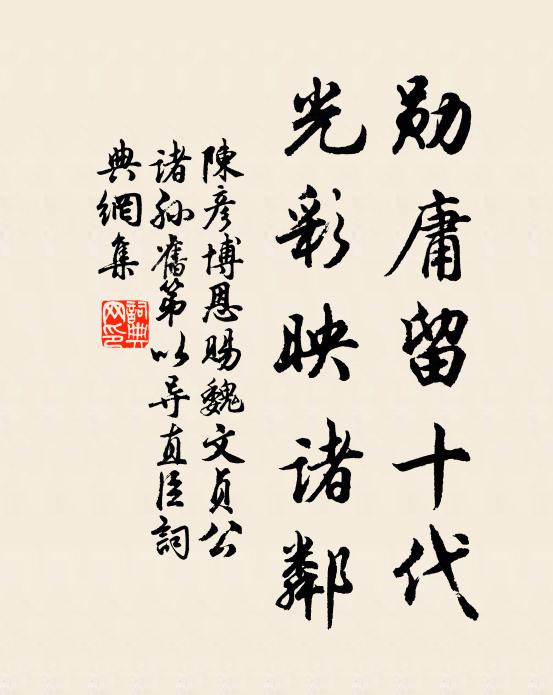 勋庸留十代
光彩映诸鄰
陳彦博恩賜魏文貞公
诸孙舊第以导直臣詞
典網集
詞典
网印